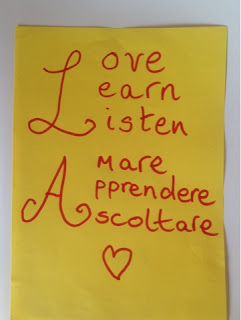 Love
Learn
Listen
Amare
Apprendere
Ascoltare